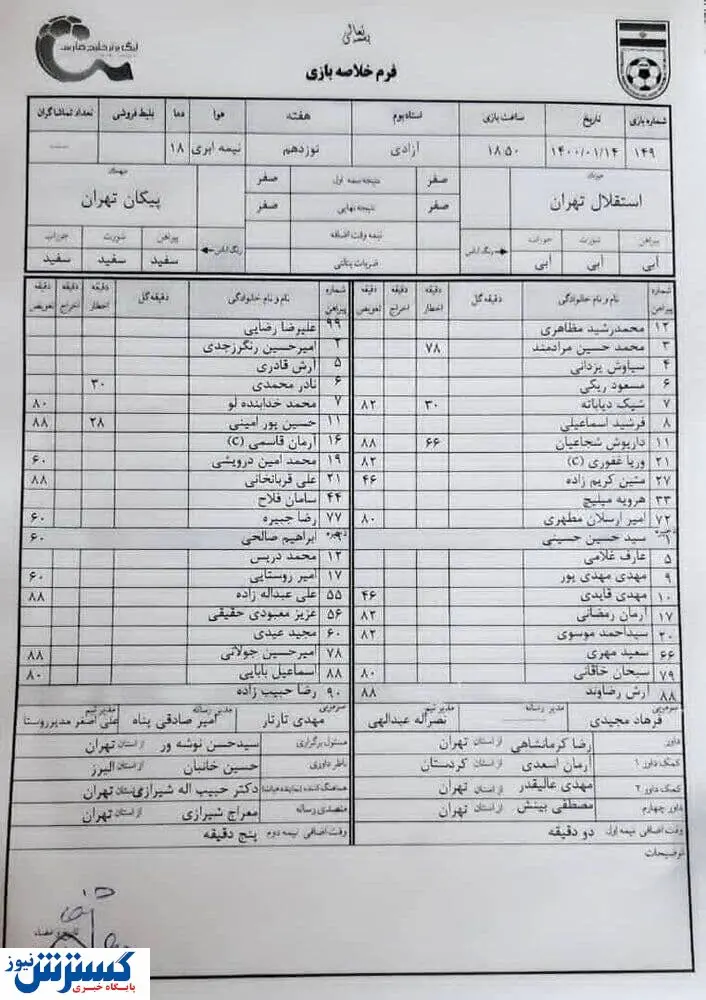 بسمه تعالی
لیگ برتر خلیج فارس
فرم خلاصه بازی
شماره بازی تاریخ ساعت بازی استادیوم هفته هوا دما بلیط فروشی تعداد تماشاگران
۱۴۹ ۱۴۰۰/۰۱/۱۴ ۱۸:۵۰ آزادی نوزدهم نیمه ابری ۱۸
میزبان صفر نتیجه نیمه اول صفر میهمان
استقلال تهران صفر نتیجه نهایی صفر پیکان تهران
پیراهن شورت جوراب رنگ لباس نیمه وقت اضافه رنگ لباس پیراهن شورت جوراب
آبی آبی آبی ضربات پنالتی سفید سفید سفید
شماره پیراهن نام و نام خانوادگی دقیقه گل دقیقه اخطار دقیقه اخراج دقیقه تعویض
۱۲ محمدرشید مظاهری
۳ محمد حسین مرادمند ۷۸
۴ سیاوش یزدانی
۶ مسعود ریگی
۷ شیک دیاباته ۳۰ ۸۲
۸ فرشید اسماعیلی
۱۱ داریوش شجاعیان ۶۶ ۸۸
۲۱ وریا غفوری (C) ۸۲
۲۷ متین کریم زاده ۴۶
۳۳ هرویه میلیچ
۷۲ امیر ارسلان مطهری ۸۰
ذخیره
۱ سید حسین حسینی
۵ عارف غلامی
۹ مهدی مهدی پور
۱۰ مهدی قایدی ۴۶
۱۷ آرمان رمضانی ۸۲
۲۰ سیداحمد موسوی ۸۲
۶۶ سعید مهری
۷۹ سبحان خاقانی ۸۰
۸۸ آرش رضاوند ۸۸
سرمربی مدیر رسانه سرپرست تیم
فرهاد مجیدی نصراله عبدالهی
شماره پیراهن نام و نام خانوادگی دقیقه گل دقیقه اخطار دقیقه اخراج دقیقه تعویض
۹۹ علیرضا رضایی
۲ امیرحسین رنگرزجدی
۵ آرش قادری
۶ نادر محمدی ۳۰
۷ محمد خدابنده لو ۸۰
۱۱ حسین پور امینی ۲۸ ۸۸
۱۶ آرمان قاسمی (C)
۱۹ محمد امین درویشی ۶۰
۲۱ علی قربانخانی ۸۸
۴۴ سامان فلاح
۷۷ رضا جبیره ۶۰
ذخیره
ابراهیم صالحی ۶۰
۱۲ محمد دریس
۱۷ امیر روستایی ۶۰
۵۵ علی عبداله زاده ۸۸
۵۶ عزیز معبودی حقیقی
۶۰ مجید عیدی
۷۸ امیرحسین جولانی ۸۸
۸۸ اسماعیل بابایی ۸۰
۹۰ رضا حبیب زاده
سرمربی مدیر رسانه سرپرست تیم
مهدی تارتار امیر صادقی پناه علی اصغر مدیرروستا
داور رضا کرمانشاهی از استان تهران
کمک داور ۱ آرمان اسعدی از استان کردستان
کمک داور ۲ مهدی عالیقدر از استان تهران
داور چهارم مصطفی بینش از استان تهران
وقت اضافی نیمه اول دو دقیقه
مسئول برگزاری سیدحسن نوشه ور از استان تهران
ناظر داوری حسین خانبان از استان البرز
هماهنگ کننده (نماینده هیات) دکتر حبیب اله شیرازی از استان تهران
متصدی رسانه معراج شیرازی از استان تهران
وقت اضافی نیمه دوم پنج دقیقه
توضیحات
گسترش نیوز
پایگاه خبری